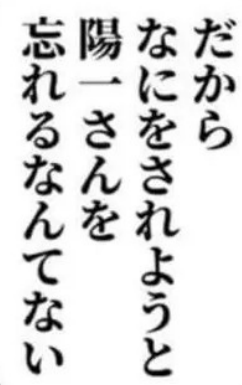 だから
なにをされようと
陽一さんを
忘れるなんてない